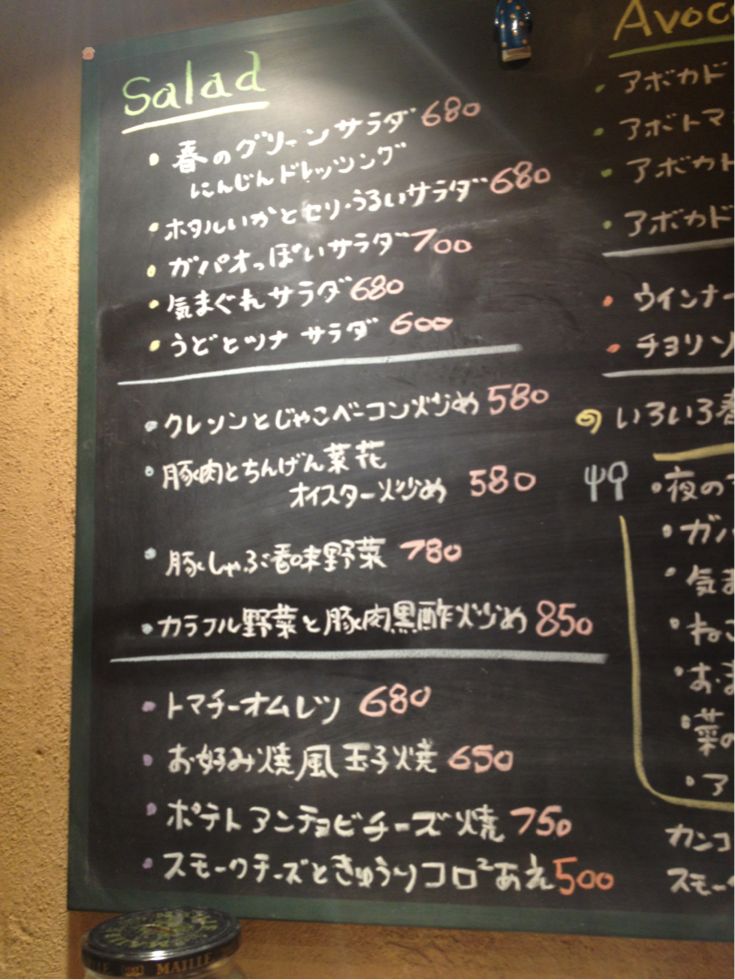 Salad
・春のグリーンサラダ 680
にんじんドレッシング
・ホタルいかとセリ・うるいサラダ 680
・ガパオっぽいサラダ 700
・気まぐれサラダ 680
・うどとツナ サラダ 600
・クレソンとじゃこベーコン炒め 580
・豚肉とちんげん菜花
オイスター炒め 580
・豚しゃぶ香味野菜 780
・カラフル野菜と豚肉黒酢炒め 850
・トマチーオムレツ 680
・お好み焼風玉子焼 650
・ポテトアンチョビチーズ焼 750
・スモークチーズときゅうりコロ²あえ 500
Avoc
・アボカド
・アボトマ
・アボカド
・アボカド
・ウインナー
・チョリソ
いろいろ春
・夜の
・ガパ
・気ま
・ねこ
・お
・菜の
・ア
カンコ
スモー
MAILLE